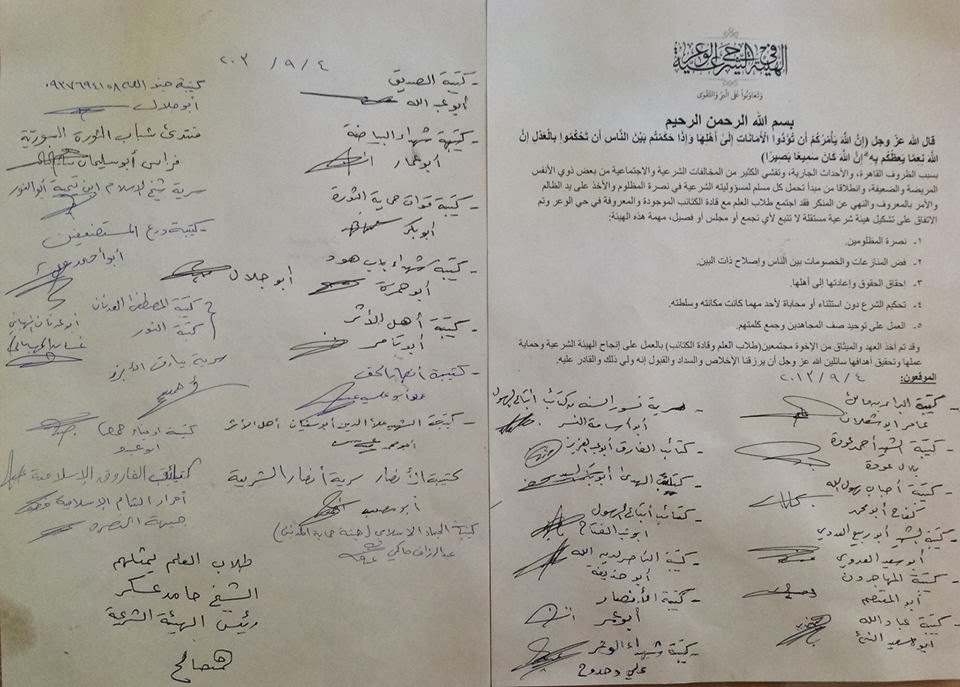 الهيئة الشرعية في حي الوعر
وتعاونوا على البر والتقوى
بسم الله الرحمن الرحيم
قال الله عز وجل (إنَّ اللهَ يأمُرُكُمْ أن تُؤدُّوا الأمَانَاتِ إلىَ أهْلِهَا وإذَا حَكَمْتُم بَيْنَ النَّاس أن تَحْكُمُوا بِالْعَدْلِ إنَّ
اللهَ نِعِمَّا يَعِظُكُم بِهِ إنَّ اللهَ كَانَ سَمِيعًا بَصِيرًا)
بسبب الظروف القاهرة، والأحداث الجارية، وتفشي الكثير من المخالفات الشرعية والاجتماعية من بعض ذوي الأنفس
المريضة والضعيفة، وانطلاقا من مبدأ تحمل كل مسلم لمسؤوليته الشرعية في نصرة المظلوم والأخذ على يد الظالم
والأمر بالمعروف والنهي عن المنكر فقد اجتمع طلاب العلم مع قادة الكتائب الموجودة والمعروفة في حي الوعر وتم
الاتفاق على تشكيل هيئة شرعية مستقلة لا تتبع لأي تجمع أو مجلس أو فصيل، مهمة هذه الهيئة:
١- نصرة المظلومين.
٢- فض المنازعات والخصومات بين الناس وإصلاح ذات البين.
٣- إحقاق الحقوق وإعادتها إلى أهلها.
٤- تحكيم الشرع دون استثناء أو محاباة لأحد مهما كانت مكانته وسلطته.
٥- العمل على توحيد صف المجاهدين وجمع كلمتهم.
وقد تم أخذ العهد والميثاق من الإخوة مجتمعين(طلاب العلم وقادة الكتائب) بالعمل على إنجاح الهيئة الشرعية وحماية
عملها وتحقيق أهدافها سائلين الله عز وجل أن يرزقنا الإخلاص والسداد والقبول إنه ولي ذلك والقادر عليه.
الموقعون: ٢٠١٣/٩/٤
- كتيبة البراء بن مالك
عامر أبو شعلان
- كتيبة الشهيد أحمد عودة
بلال عودة
- كتيبة أحباب رسول الله
كفاح أبو محمد
- كتيبة الشهيد أبو ربيع العدوي
أبو سعيد العدوي
- كتيبة المهاجرون
أبو المعتصم
- كتيبة عباد الله
- سرية نسور السنة
أبو أسامة النسر
- كتائب الفاروق أبو عبد العزيز
- كتائب الهدى
- كتائب أتباع الرسول
أبو عبد الفتاح
- كتيبة الناصر لدين الله
أبو حذيفة
- كتيبة الأنصار
أبو عمر
- كتيبة شهداء الوعر
علي دحدوح
٢٠١٣ / ٩ / ٤
- كتيبة الصديق
أبو عبد الله
- كتيبة شهداء البياضة
أبو عمار
- كتيبة قوات حماية الثورة
أبو بكر
- كتيبة شهداء باب هود
أبو حمزة
أبو جلال
- كتيبة أهل الأثر
أبو ثامر
- كتيبة أنصار الحق
- كتيبة الشهيد علاء الدين أبو سفيان أهل الأثر
كتيبة الأنصار سرية أنصار الشريعة
كتيبة جند الله ٠٩٣٧٦٩٤١٥٨
أبو جلال
منتدى شباب الثورة السورية
فراس أبو سليمان
سرية شيخ الإسلام ابن تيمية أبو النور
- كتيبة درع المستضعفين
أبو أحمد
كتيبة المصطفى العدنان
كتيبة النور
سرية بيارق الأبرز
كتائب الفاروق الإسلامية
أحرار الشام الإسلامية
جبهة النصرة
طلاب العلم يمثلهم
الشيخ حامد عسكر
رئيس الهيئة الشرعية